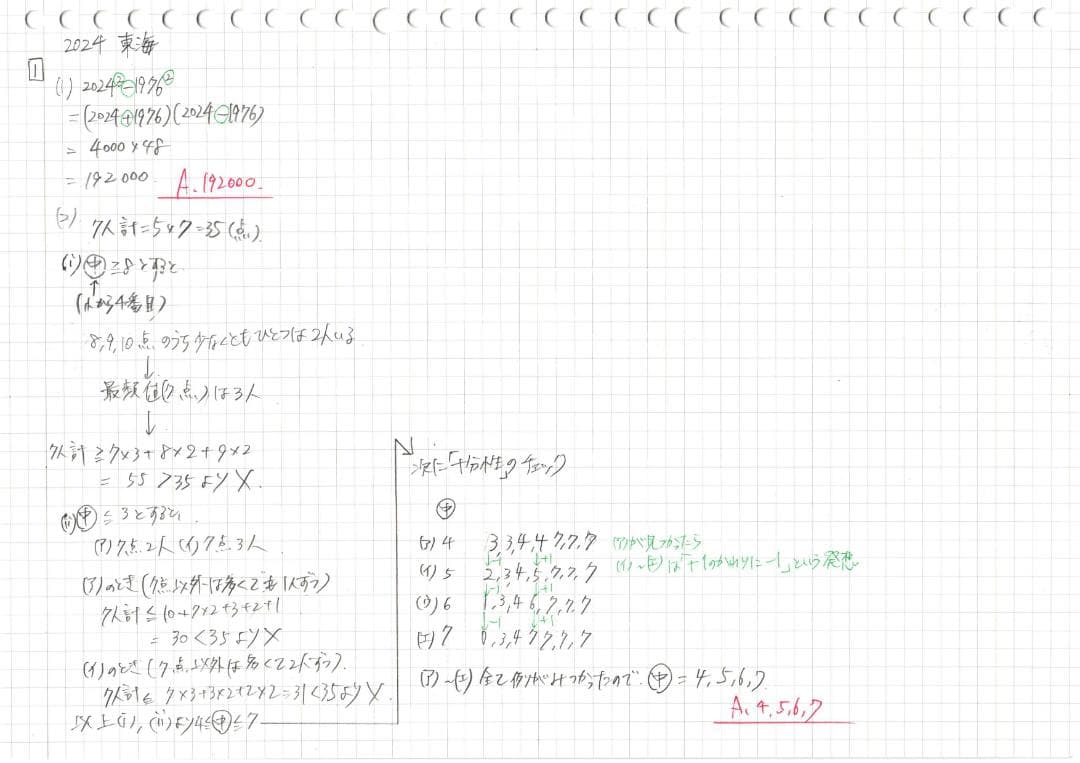 2024 東海
1
(1) 2024²-1976²
=(2024+1976)(2024-1976)
= 4000×48
= 192000 A. 192000.
(2) 7人計=5×7=35(点)
(i) 中 ≧8とすると
↑
(から4番目)
8,9,10点のうち少なくともひとつは2人いる
↓
最頻値(7点)は3人
↓
7人計≧7×3+8×2+9×2
= 55 >35より×.
(ii) 中≦3とすると,
(ア)7点2人(イ)7点3人
(ア)のとき(7点以外は多くても1人ずつ)
7人計≦10+7×2+3+2+1
= 30<35より×
(イ)のとき(7点以外は多くて2人ずつ).
7人計≦ 7×3+3×2+2×2=31<35より×.
以上(i),(ii)より4≦中≦7
次に「十分性」のチェック
中
(ア) 4 3,3,4,4,7,7,7 (ア)が見つかったら
↓-1 ↓+1 (イ)~(エ)は「+1のかわりに-1」という発想
(イ) 5 2,3,4,5,7,7,7
↓-1 ↓+1
(ウ) 6 1,3,4,6,7,7,7
↓-1 ↓+1
(エ) 7 0,3,4,7,7,7,7
(ア)~(エ)全て例がみつかったので.中=4,5,6,7
A. 4,5,6,7